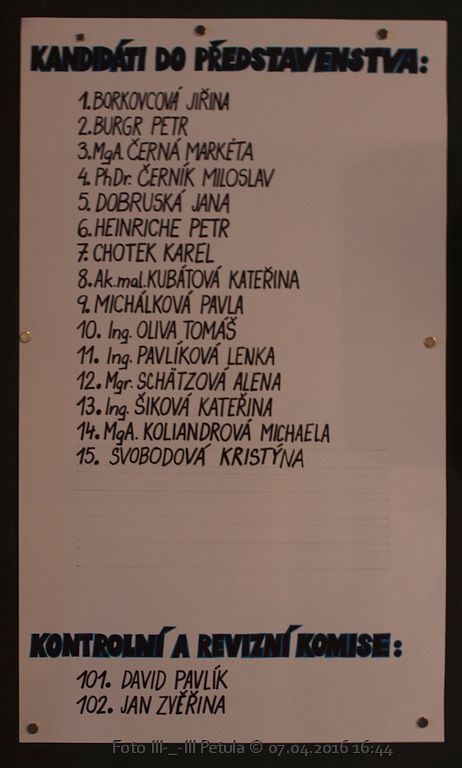 KANDIDÁTI DO PŘEDSTAVENSTVA:
1. BORKOVCOVÁ JIŘINA
2. BURGR PETR
3. MgA. ČERNÁ MARKÉTA
4. PhDr. ČERNÍK MILOSLAV
5. DOBRUSKÁ JANA
6. HEINRICHE PETR
7. CHOTEK KAREL
8. Ak.mal. KUBÁTOVÁ KATEŘINA
9. MICHÁLKOVÁ PAVLA
10. Ing. OLIVA TOMÁŠ
11. Ing. PAVLÍKOVÁ LENKA
12. Mgr. SCHÄTZOVÁ ALENA
13. Ing. ŠIKOVÁ KATEŘINA
14. MgA. KOLIANDROVÁ MICHAELA
15. SVOBODOVÁ KRISTÝNA
KONTROLNÍ A REVIZNÍ KOMISE:
101. DAVID PAVLÍK
102. JAN ZVĚŘINA
Foto III-_-III Petula © 07.04.2016 16:44